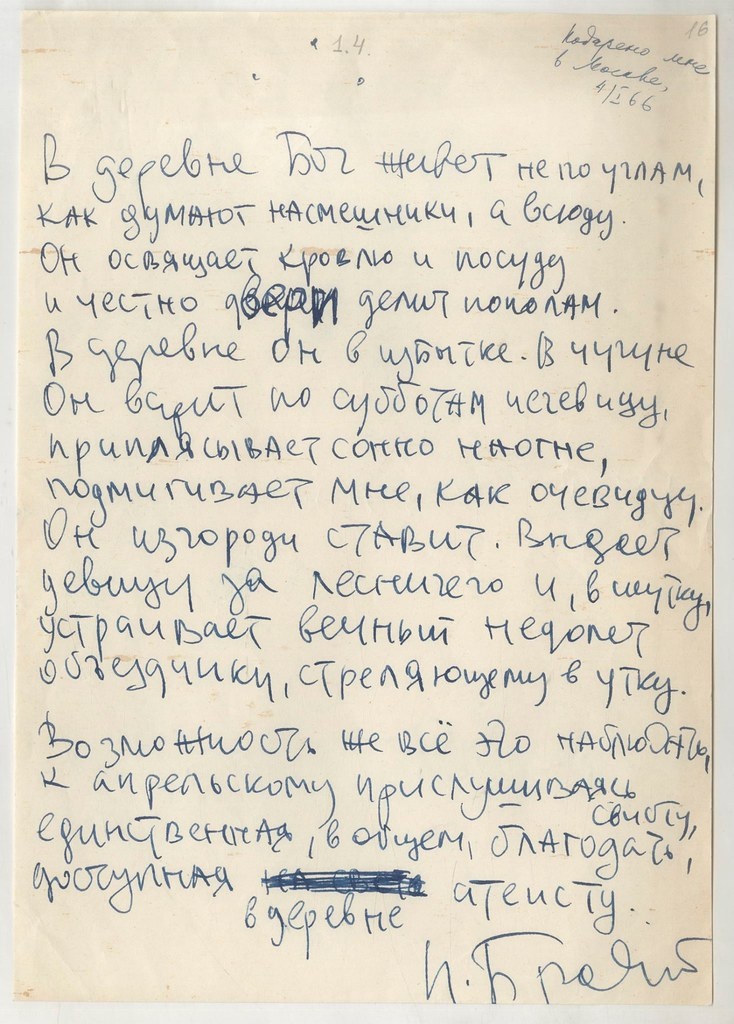 1.4.
16
Подарено мне
в Москве,
4/I 66
В деревне Бог живет не по углам,
как думают насмешники, а всюду.
Он освящает кровлю и посуду
и честно двери делит пополам.
В деревне он в избытке. В чугуне
Он варит по субботам чечевицу,
приплясывает сонно на огне,
подмигивает мне, как очевидцу.
Он изгороди ставит. Выдает
девицу за лесничего и, в шутку,
устраивает вечный недолет
объездчику, стреляющему в утку.
Возможность же всё это наблюдать,
к апрельскому прислушиваясь
свисту,
единственная, в общем, благодать,
доступная атеисту.
в деревне
И. Бродский